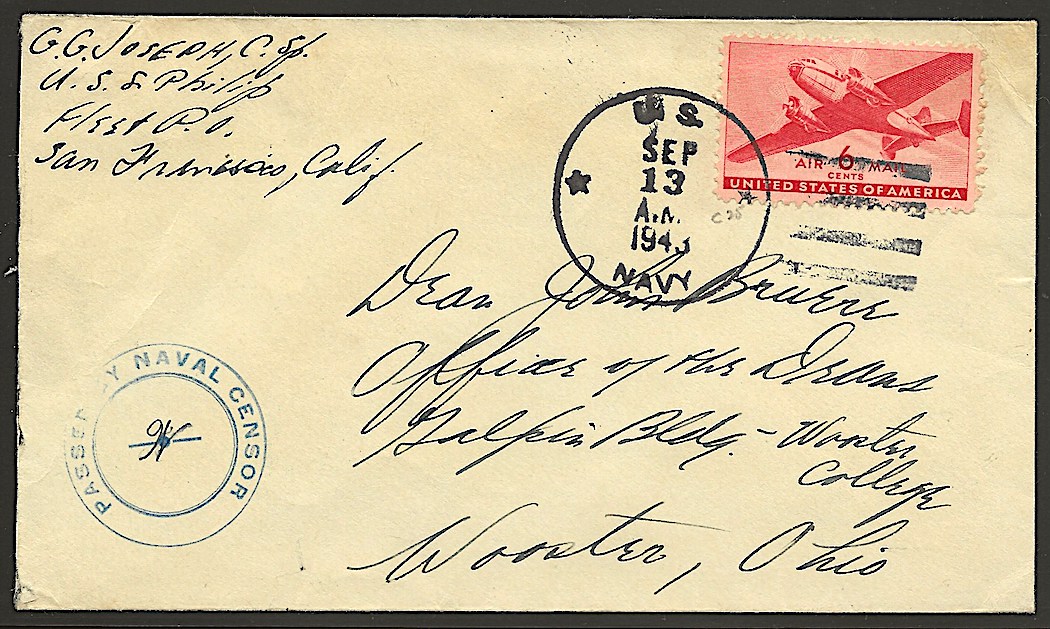 G.G. JOSEPH, C. Sp.
U.S.S Philip
Fleet P.O.
San Francisco, Calif.
U.S.
SEP
13
A.M.
1943
NAVY
AIR 6 MAIL
CENTS
UNITED STATES OF AMERICA
C25
Dean John Bruere
Office of the Deans
Galpin Bldg. - Wooster
College
Wooster, Ohio
PASSED BY NAVAL CENSOR